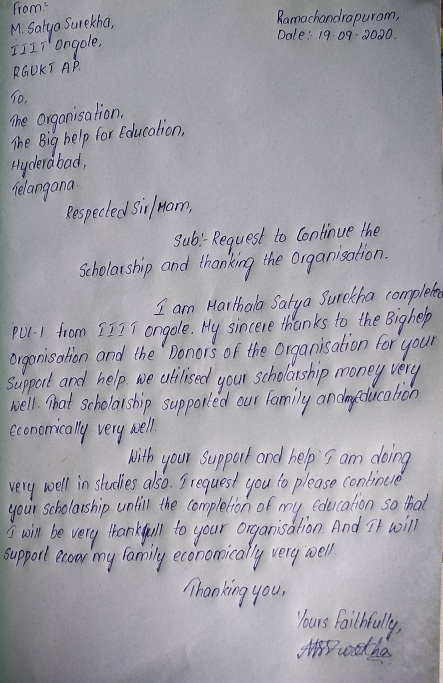 From:-
M. Satya Surekha,
IIIT Ongole,
RGUKT AP.
Ramachandrapuram,
Date:- 19-09-2020.
To,
The Organisation,
The Big help for Education,
Hyderabad,
Telangana.
Respected Sir/Mam,
Sub:- Request to Continue the
Scholarship and thanking the Organisation.
I am Marthala Satya Surekha completed
PUC-1 from IIIT Ongole. My sincere thanks to the Bighelp
Organisation and the Donors of the Organisation for your
Support and help. we utilised your scholarship money very
well. That scholarship supported our family and my education
Economically very well.
With your Support and help I am doing
very well in studies also. I request you to please continue
your scholarship untill the completion of my Education so that
I will be very thankfull to your Organisation. And It will
Support my family economically very well.
Thanking you,
Yours Faithfully,